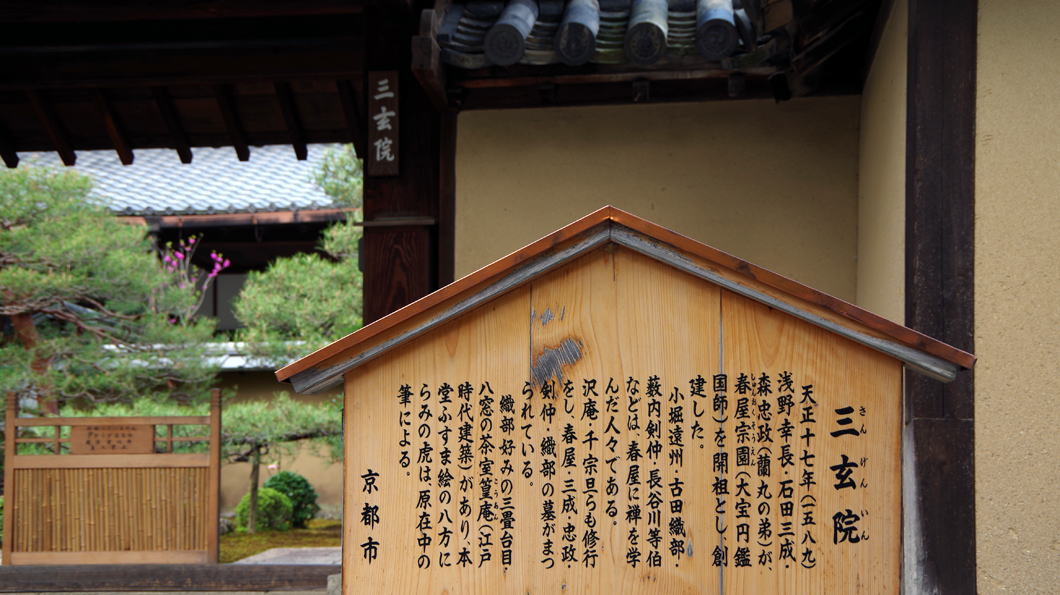 三玄院
三玄院
さん げん いん
天正十七年(一五八九)
浅野幸長・石田三成・
森忠政(蘭丸の弟)が、
春屋宗園(大宝円鑑
しゅんおくそうえん
国師)を開祖とし創
建した。
小堀遠州・古田織部・
藪内剣仲・長谷川等伯
などは、春屋に禅を学
んだ人々である。
沢庵・千宗旦らも修行
をし、春屋・三成・忠政・
剣仲・織部の墓がまつ
られている。
織部好みの三畳台目・
八窓の茶室篁庵(江戸
こうあん
時代建築)があり、本
堂ふすま絵の八方に
らみの虎は、原在中の
筆による。
京都市